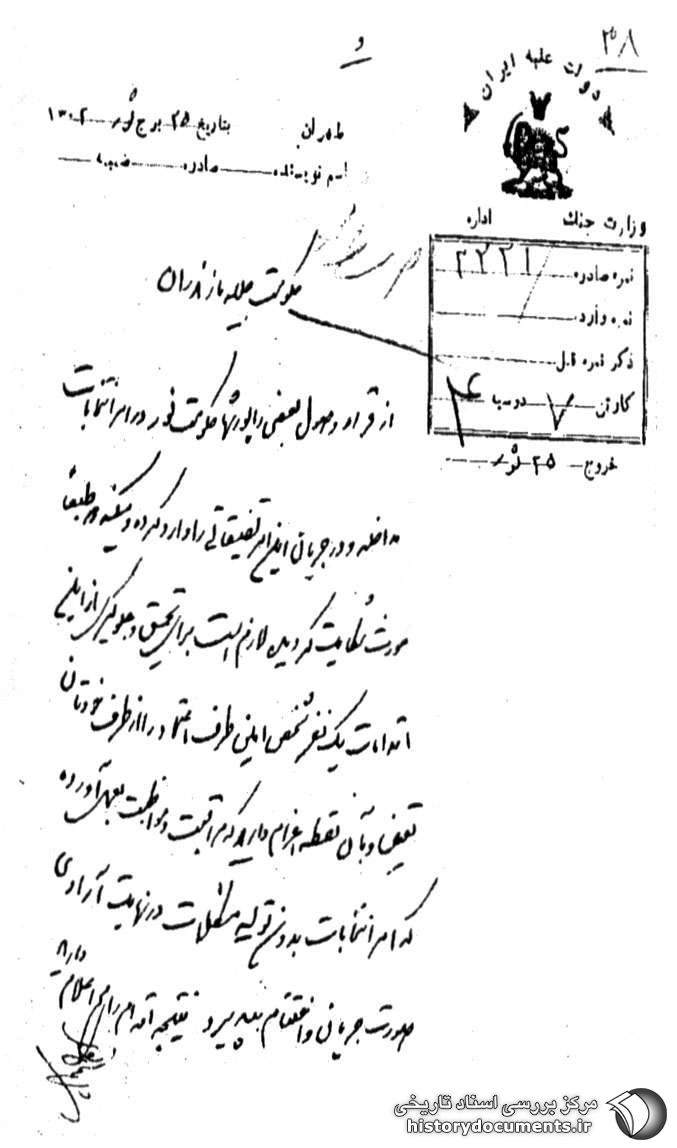 ۳۸
و
دولت علیه ایران
طهران بتاریخ ۲۵ برج ثور ۱۳۰۲
اسم نویسنده صادره ضمیمه
وزارت جنگ اداره
نمره صادره ۲۲۲۱
نمره وارده
ذکر نمره قبل
کارتن ۷ دوسیه ۴
خروج ۲۵ ثور
حکومت جلیله مازندران
از قرار وصول بعضی راپورتها حکومت نور در امر انتخابات
مداخله و در جریان این امر تضییقاتی را وارد کرده و میکند و طبعاً
مورث شکایت گردیده لازم است برای تحقیق و جلوگیری از این
اقدامات یک نفر شخص امین طرف اعتماد را از طرف خودتان
تعیین و بآن نقطه اعزام دارید که مراقبت و مواظبت بعمل آورده
که امر انتخابات بدون تولید مشکلات در نهایت آزادی
صورت جریان و اختتام بپذیرد نتیجه اقدام را هم اعلام
دارید
مرکز بررسی اسناد تاریخی
historydocuments.ir